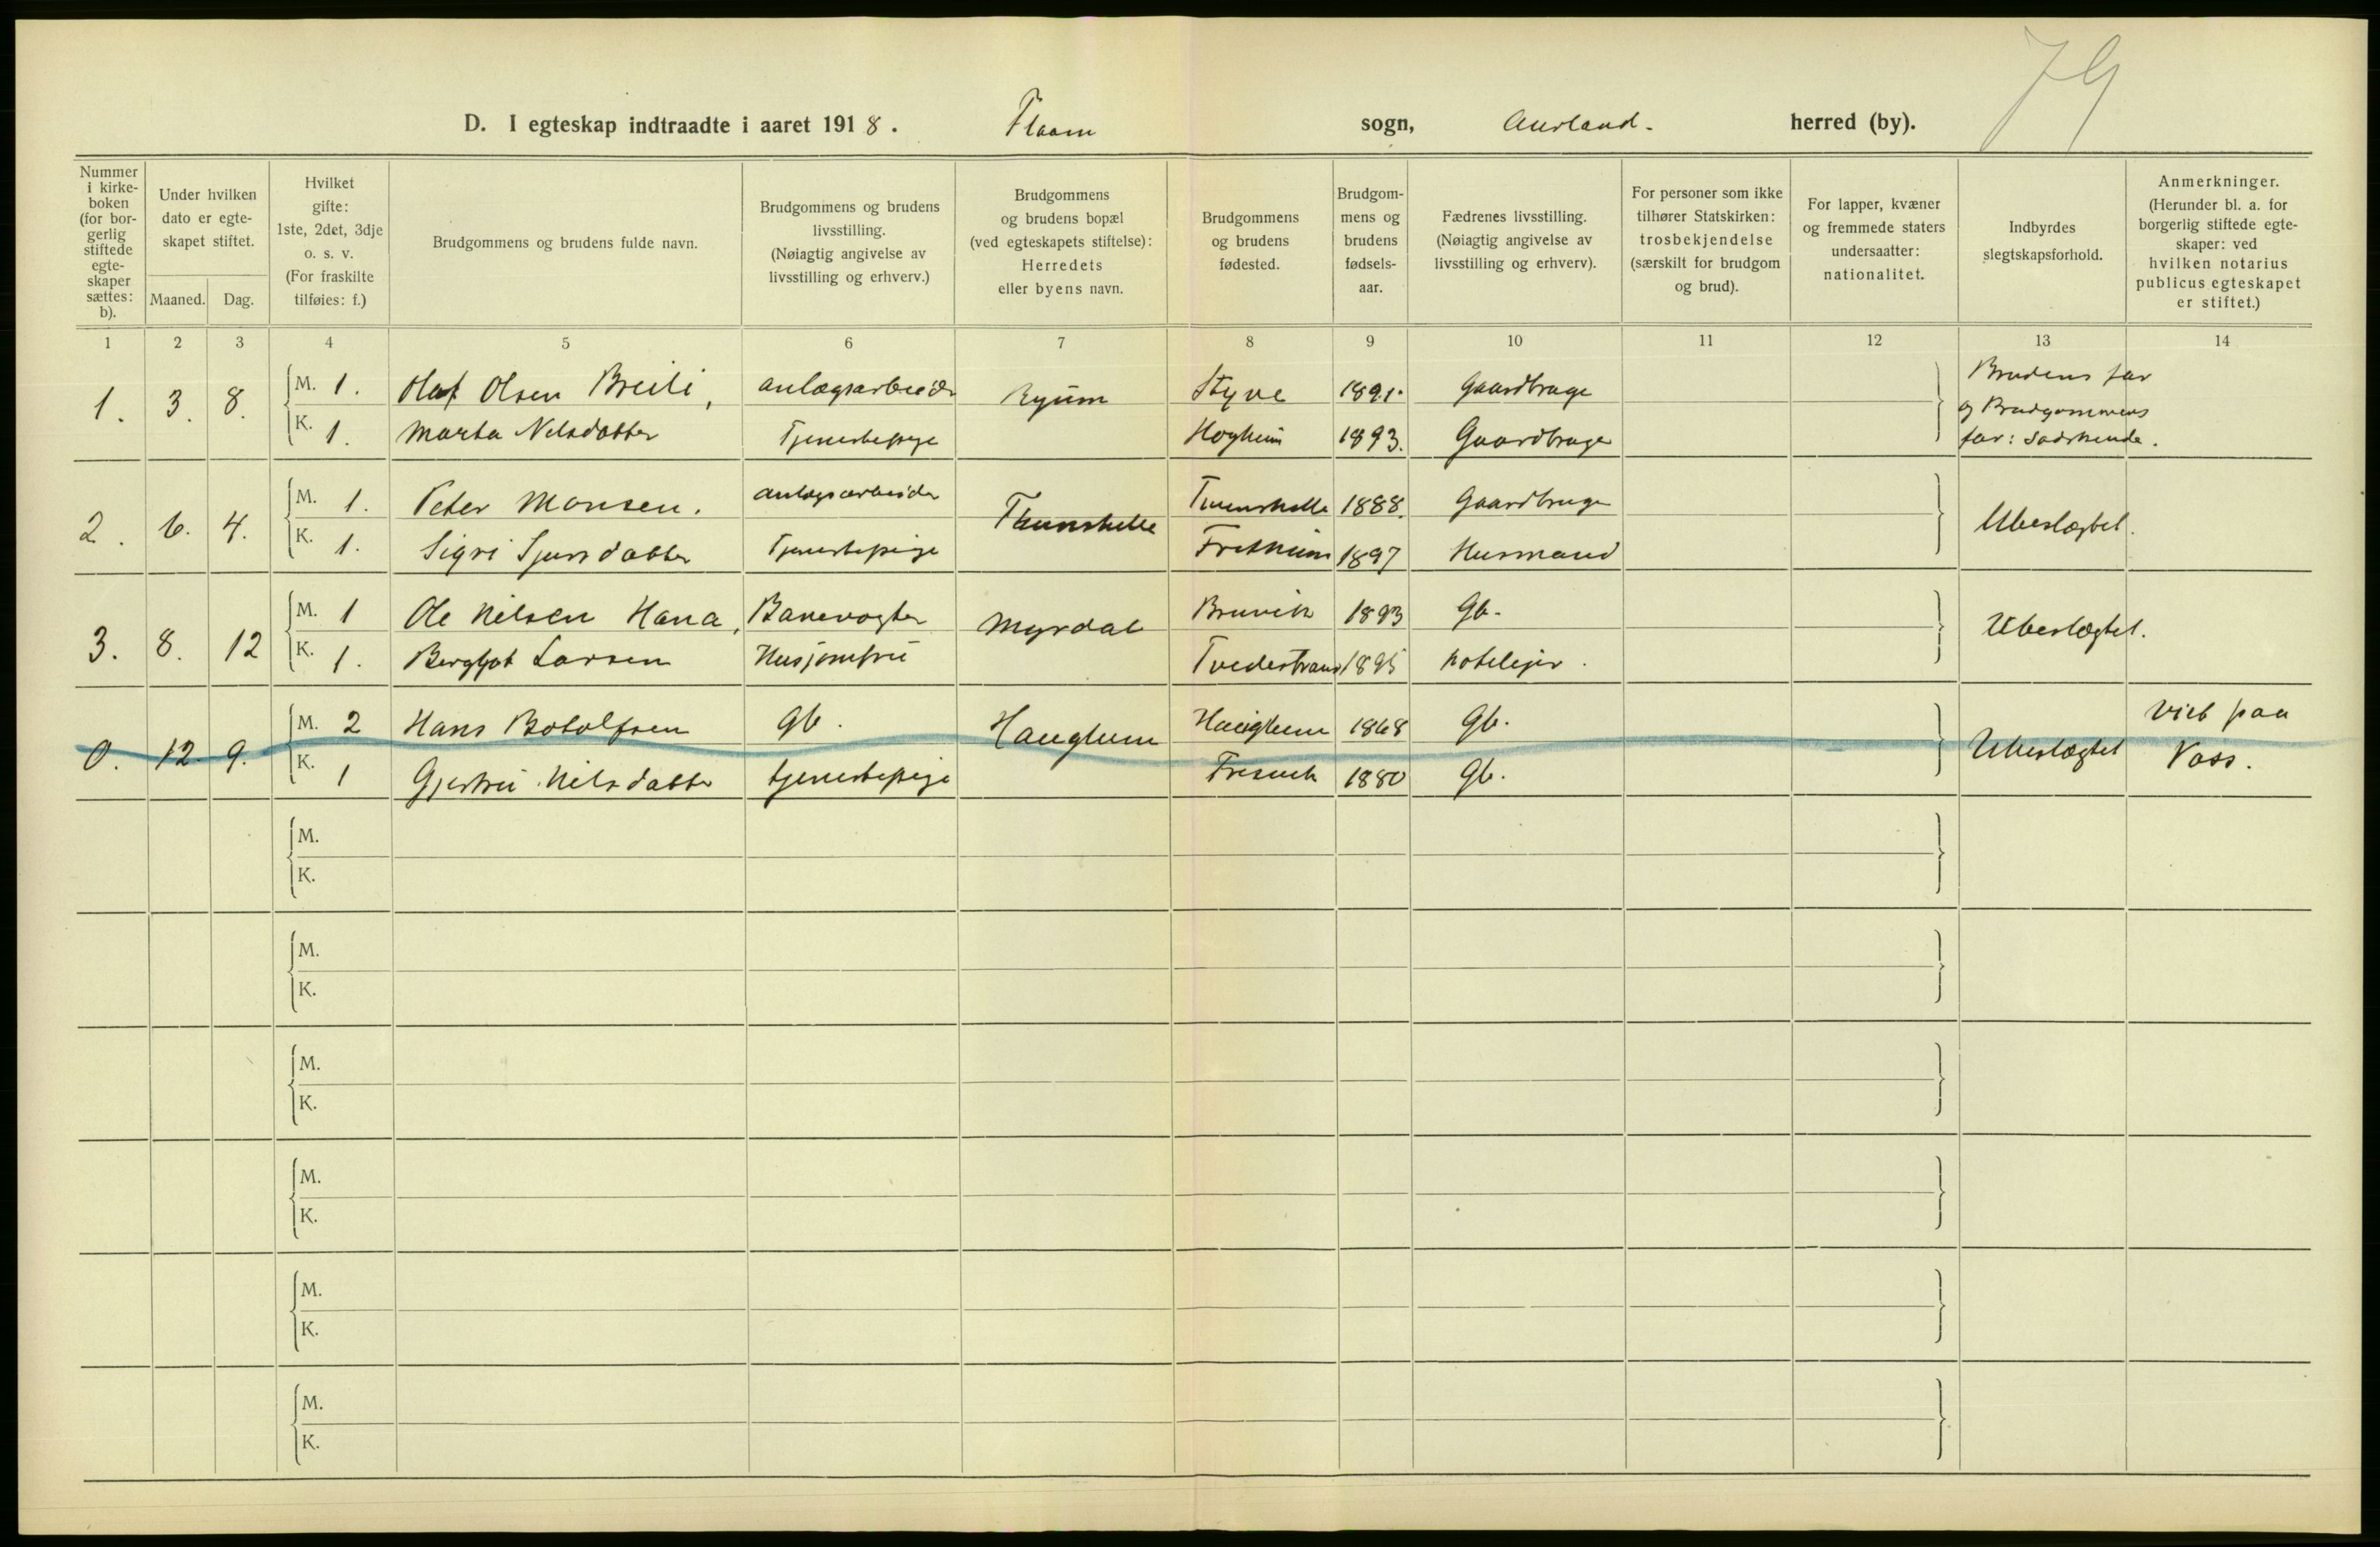 79
D. I egteskap indtraadte i aaret 1918. Flaam sogn, Aurland. herred (by).
Nummer i kirkeboken (for borgerlig stiftede egteskaper sættes: b).
Under hvilken dato er egteskapet stiftet.
Maaned. Dag.
Hvilket gifte: 1ste, 2det, 3dje o. s. v. (For fraskilte tilføies: f.)
Brudgommens og brudens fulde navn.
Brudgommens og brudens livsstilling. (Nøiagtig angivelse av livsstilling og erhverv.)
Brudgommens og brudens bopæl (ved egteskapets stiftelse): Herredets eller byens navn.
Brudgommens og brudens fødested.
Brudgommens og brudens fødselsaar.
Fædrenes livsstilling. (Nøiagtig angivelse av livsstilling og erhverv).
For personer som ikke tilhører Statskirken: trosbekjendelse (særskilt for brudgom og brud).
For lapper, kvæner og fremmede staters undersaatter: nationalitet.
Indbyrdes slegtskapsforhold.
Anmerkninger. (Herunder bl. a. for borgerlig stiftede egteskaper: ved hvilken notarius publicus egteskapet er stiftet.)
1 2 3 4 5 6 7 8 9 10 11 12 13 14
1. 3. 8. M. 1. Olaf Olsen Breili, anlægsarbeider Ryum Styve 1891. Gaardbruge Brudens far og Brudgommens far:
K. 1. Marta Nilsdatter Tjenestepige Hogheim 1893. Gaardbruge
2. 6. 4. M. 1. Peter Monsen. anlægsarbeider Tunshelle 1888. Gaardbruge Ubeslægtet.
K. 1. Sigri Sjursdatter Tjenestepige Fretheim 1897 Husmand
3. 8. 12 M. 1 Ole Nilsen Hana, Banevogter Myrdal Bruvik 1893 Gb. Ubeslægtet.
K. 1. Bergljot Larsen Husjomfru Tvedestrand 1895 hotelejer.
0. 12. 9. M. 2 Hans Botolfsen Gb. Haugleim Haugleim 1868 Gb. Ubeslægtet Viet paa Voss.
K. 1 Gjertru Nilsdatter tjenestepige Fresvik 1880 Gb.
M.
K.
M.
K.
M.
K.
M.
K.
M.
K.
M.
K.